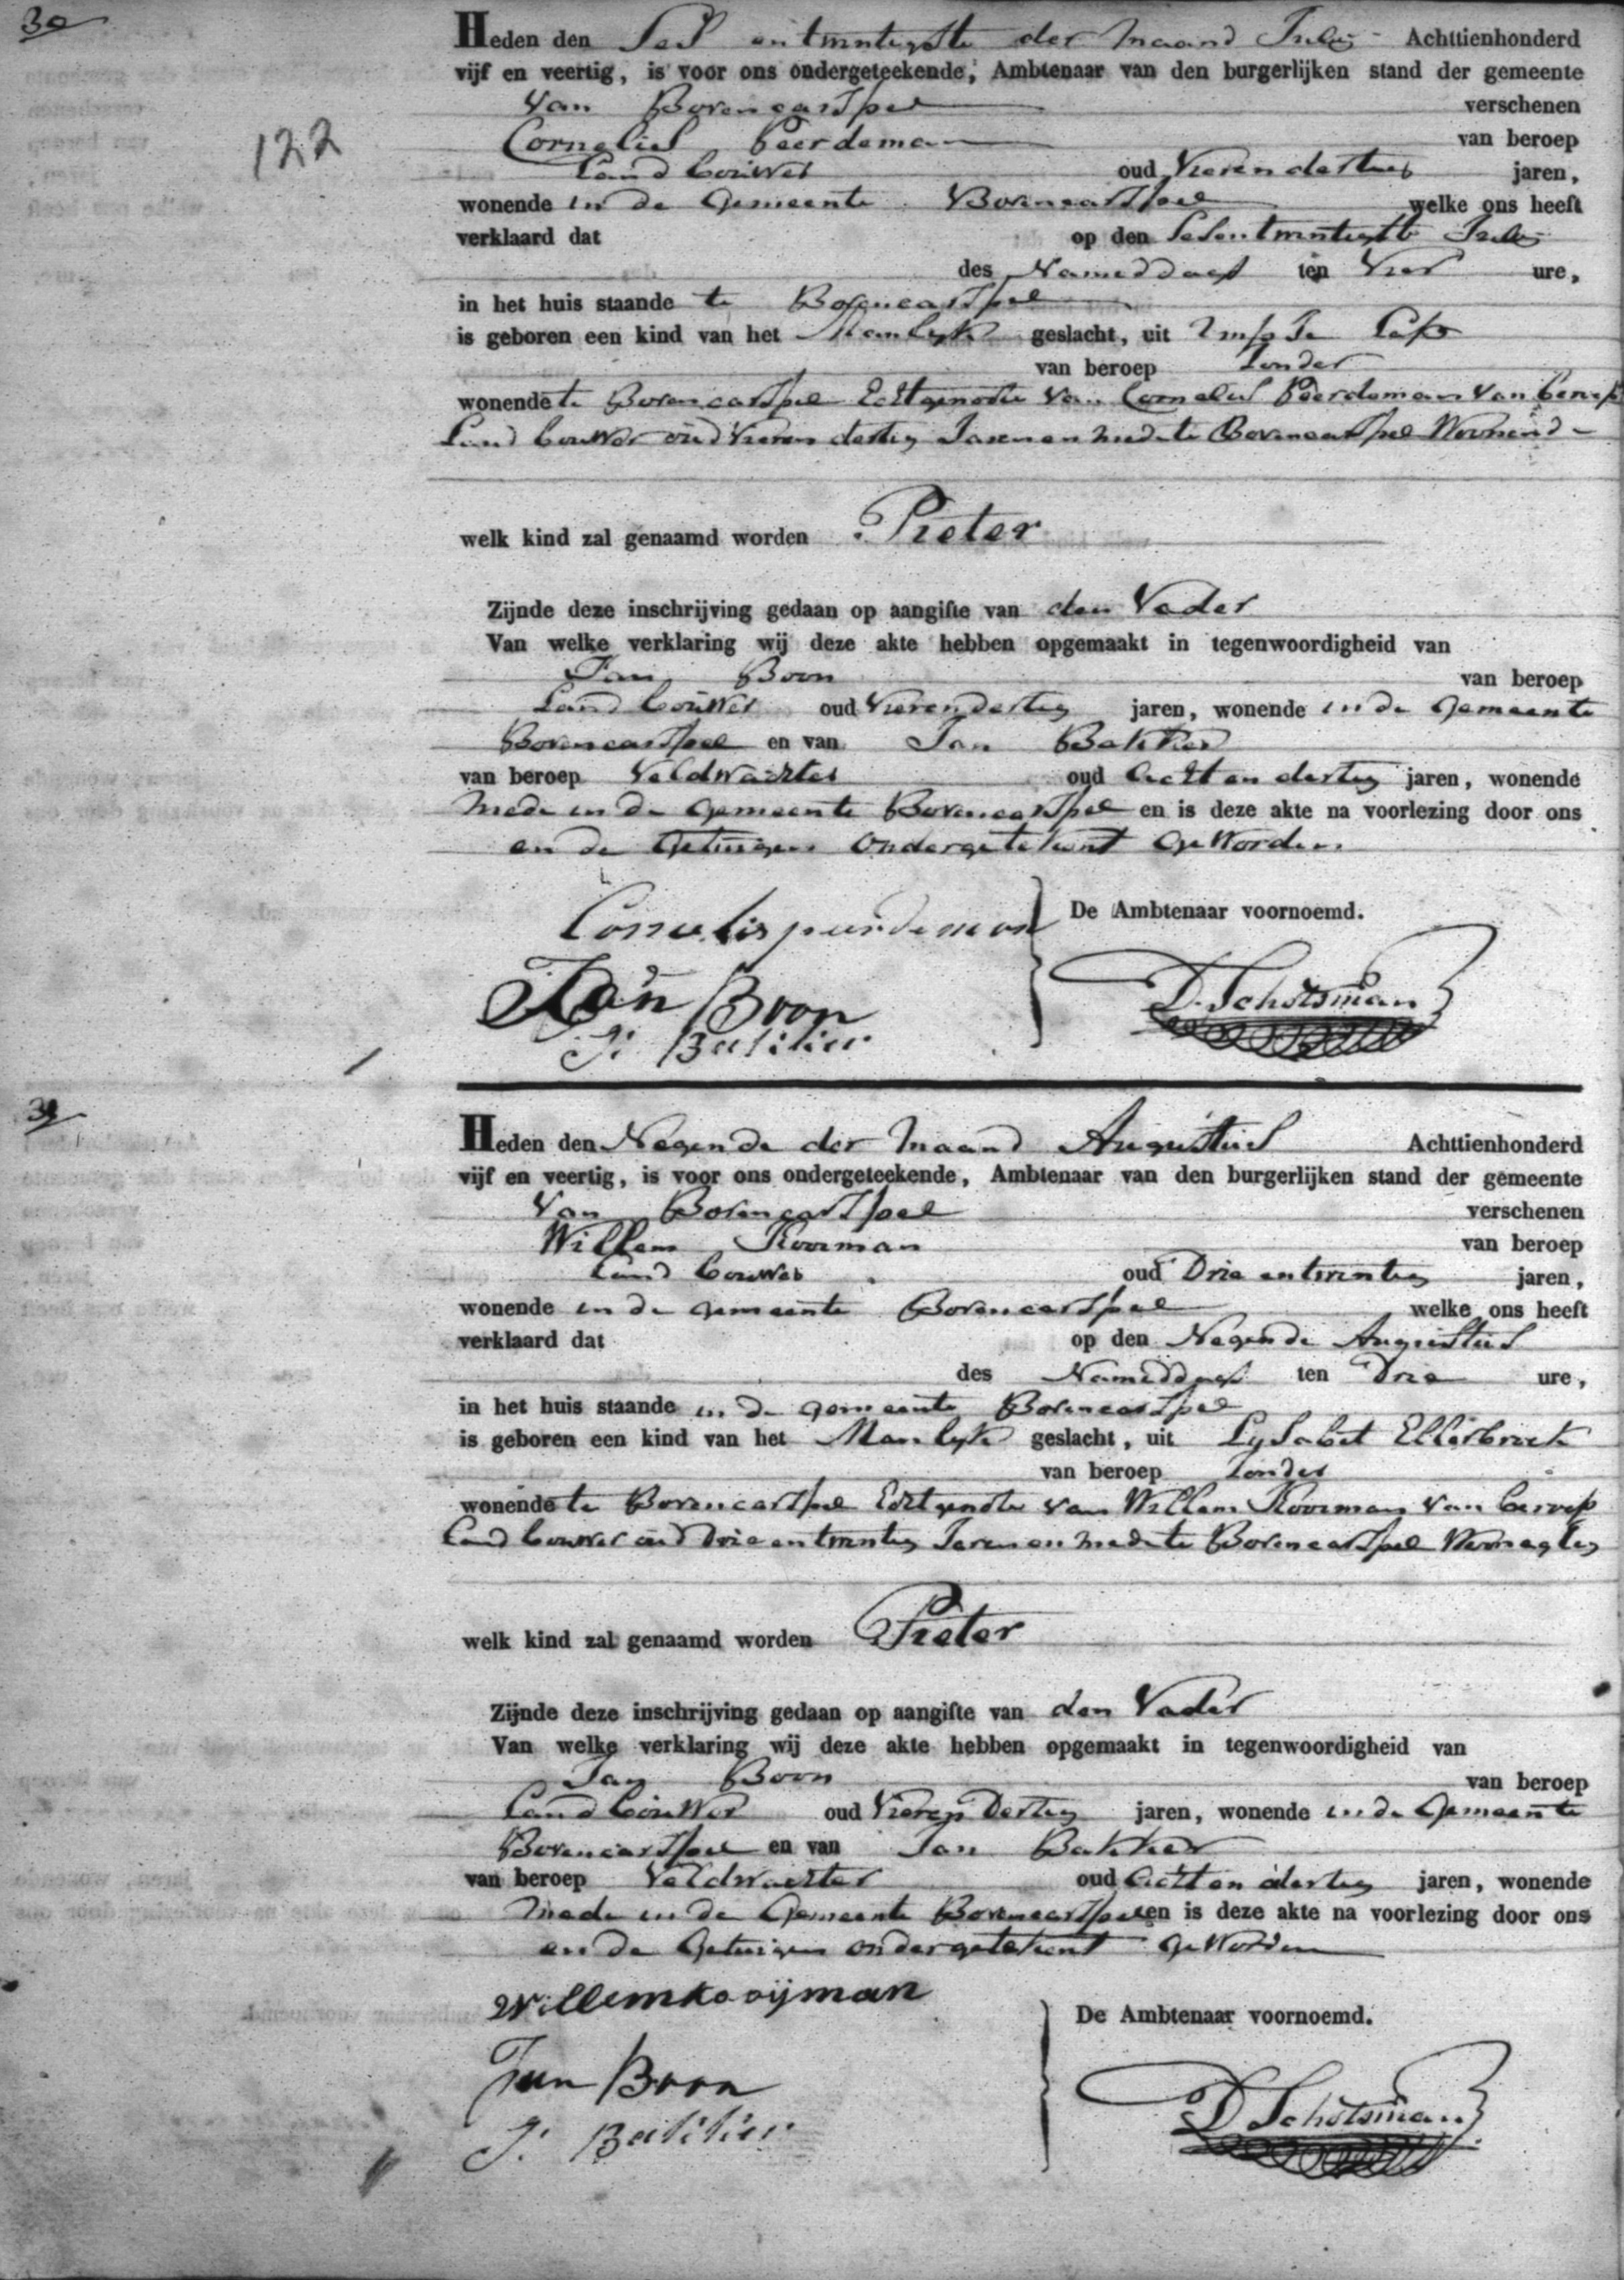 30
Heden den Ses entwintigste der Maand Julij Achttienhonderd
vijf en veertig, is voor ons ondergeteekende, Ambtenaar van den burgerlijken stand der gemeente
Van Bovencarspel verschenen
122
Cornelis Peerdeman van beroep
Landbouwer oud Vierendertig jaren,
wonende in de Gemeente Bovencarspel welke ons heeft
verklaard dat op den Sesentwintigste Julij
des Nameddags ten Vier ure,
in het huis staande te Bovencarspel
is geboren een kind van het Manlyk geslacht, uit
van beroep Zonder
wonende te Bovencarspel Echtgenote van Cornelis Peerdeman van beroep
Landbouwer oud Vieren dertig Jaren en mede te Bovencarspel Woonend
welk kind zal genaamd worden Pieter
Zijnde deze inschrijving gedaan op aangifte van den Vader
Van welke verklaring wij deze akte hebben opgemaakt in tegenwoordigheid van
Jan Boon van beroep
Landbouwer oud Vierendertig jaren, wonende in de Gemeente
Bovencarspel en van Jan Bakker
van beroep Veldwachter oud Acht en dertig jaren, wonende
Mede in de Gemeente Bovencarspel en is deze akte na voorlezing door ons
en de Getuigen ondergetekent geworden
Cornelis peerdeman
De Ambtenaar voornoemd.
Jan Boon
D. Schotsman
J. Bakker
31
Heden den Negende der Maand Augustus Achttienhonderd
vijf en veertig, is voor ons ondergeteekende, Ambtenaar van den burgerlijken stand der gemeente
Van Bovencarspel verschenen
Willem Kooiman van beroep
Landbouwer oud Drie entwintig jaren,
wonende in de gemeente Bovencarspel welke ons heeft
verklaard dat op den Negende Augustus
des Nameddags ten Drie ure,
in het huis staande in de gemeente Bovencarspel
is geboren een kind van het Manlyk geslacht, uit Lysabet Ellerbroek
van beroep Zonder
wonende te Bovencarspel Echtgenote van Willem Kooiman van beroep
Landbouwer oud Drie entwintig Jaren en mede te Bovencarspel
welk kind zal genaamd worden Pieter
Zijnde deze inschrijving gedaan op aangifte van den Vader
Van welke verklaring wij deze akte hebben opgemaakt in tegenwoordigheid van
Jan Boon van beroep
Landbouwer oud Vieren Dertig jaren, wonende in de Gemeente
Bovencarspel en van Jan Bakker
van beroep Veldwachter oud Acht en dertig jaren, wonende
Mede in de Gemeente Bovencarspel en is deze akte na voorlezing door ons
en de Getuigen ondergetekent geworden
Willem kooijman
De Ambtenaar voornoemd.
Jan Boon
D Schotsman
J. Bakker